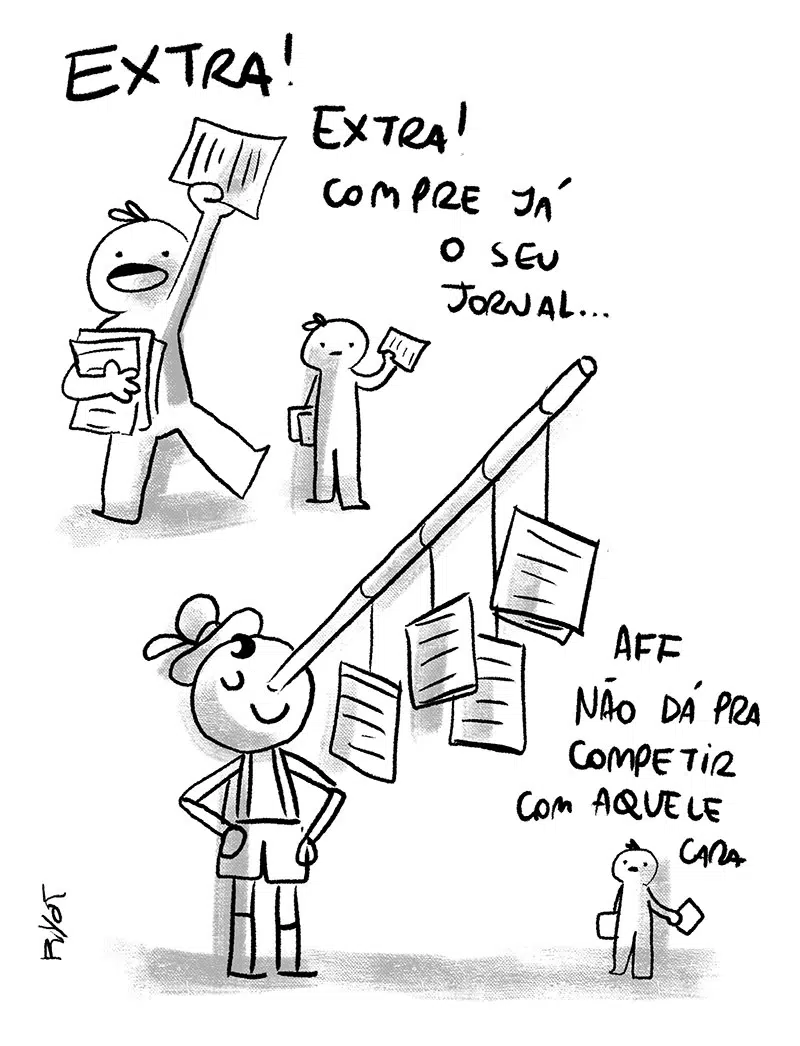 EXTRA!
EXTRA!
COMPRE JÁ
O SEU
JORNAL...
AFF
NÃO DÁ PRA
COMPETIR
COM AQUELE
CARA